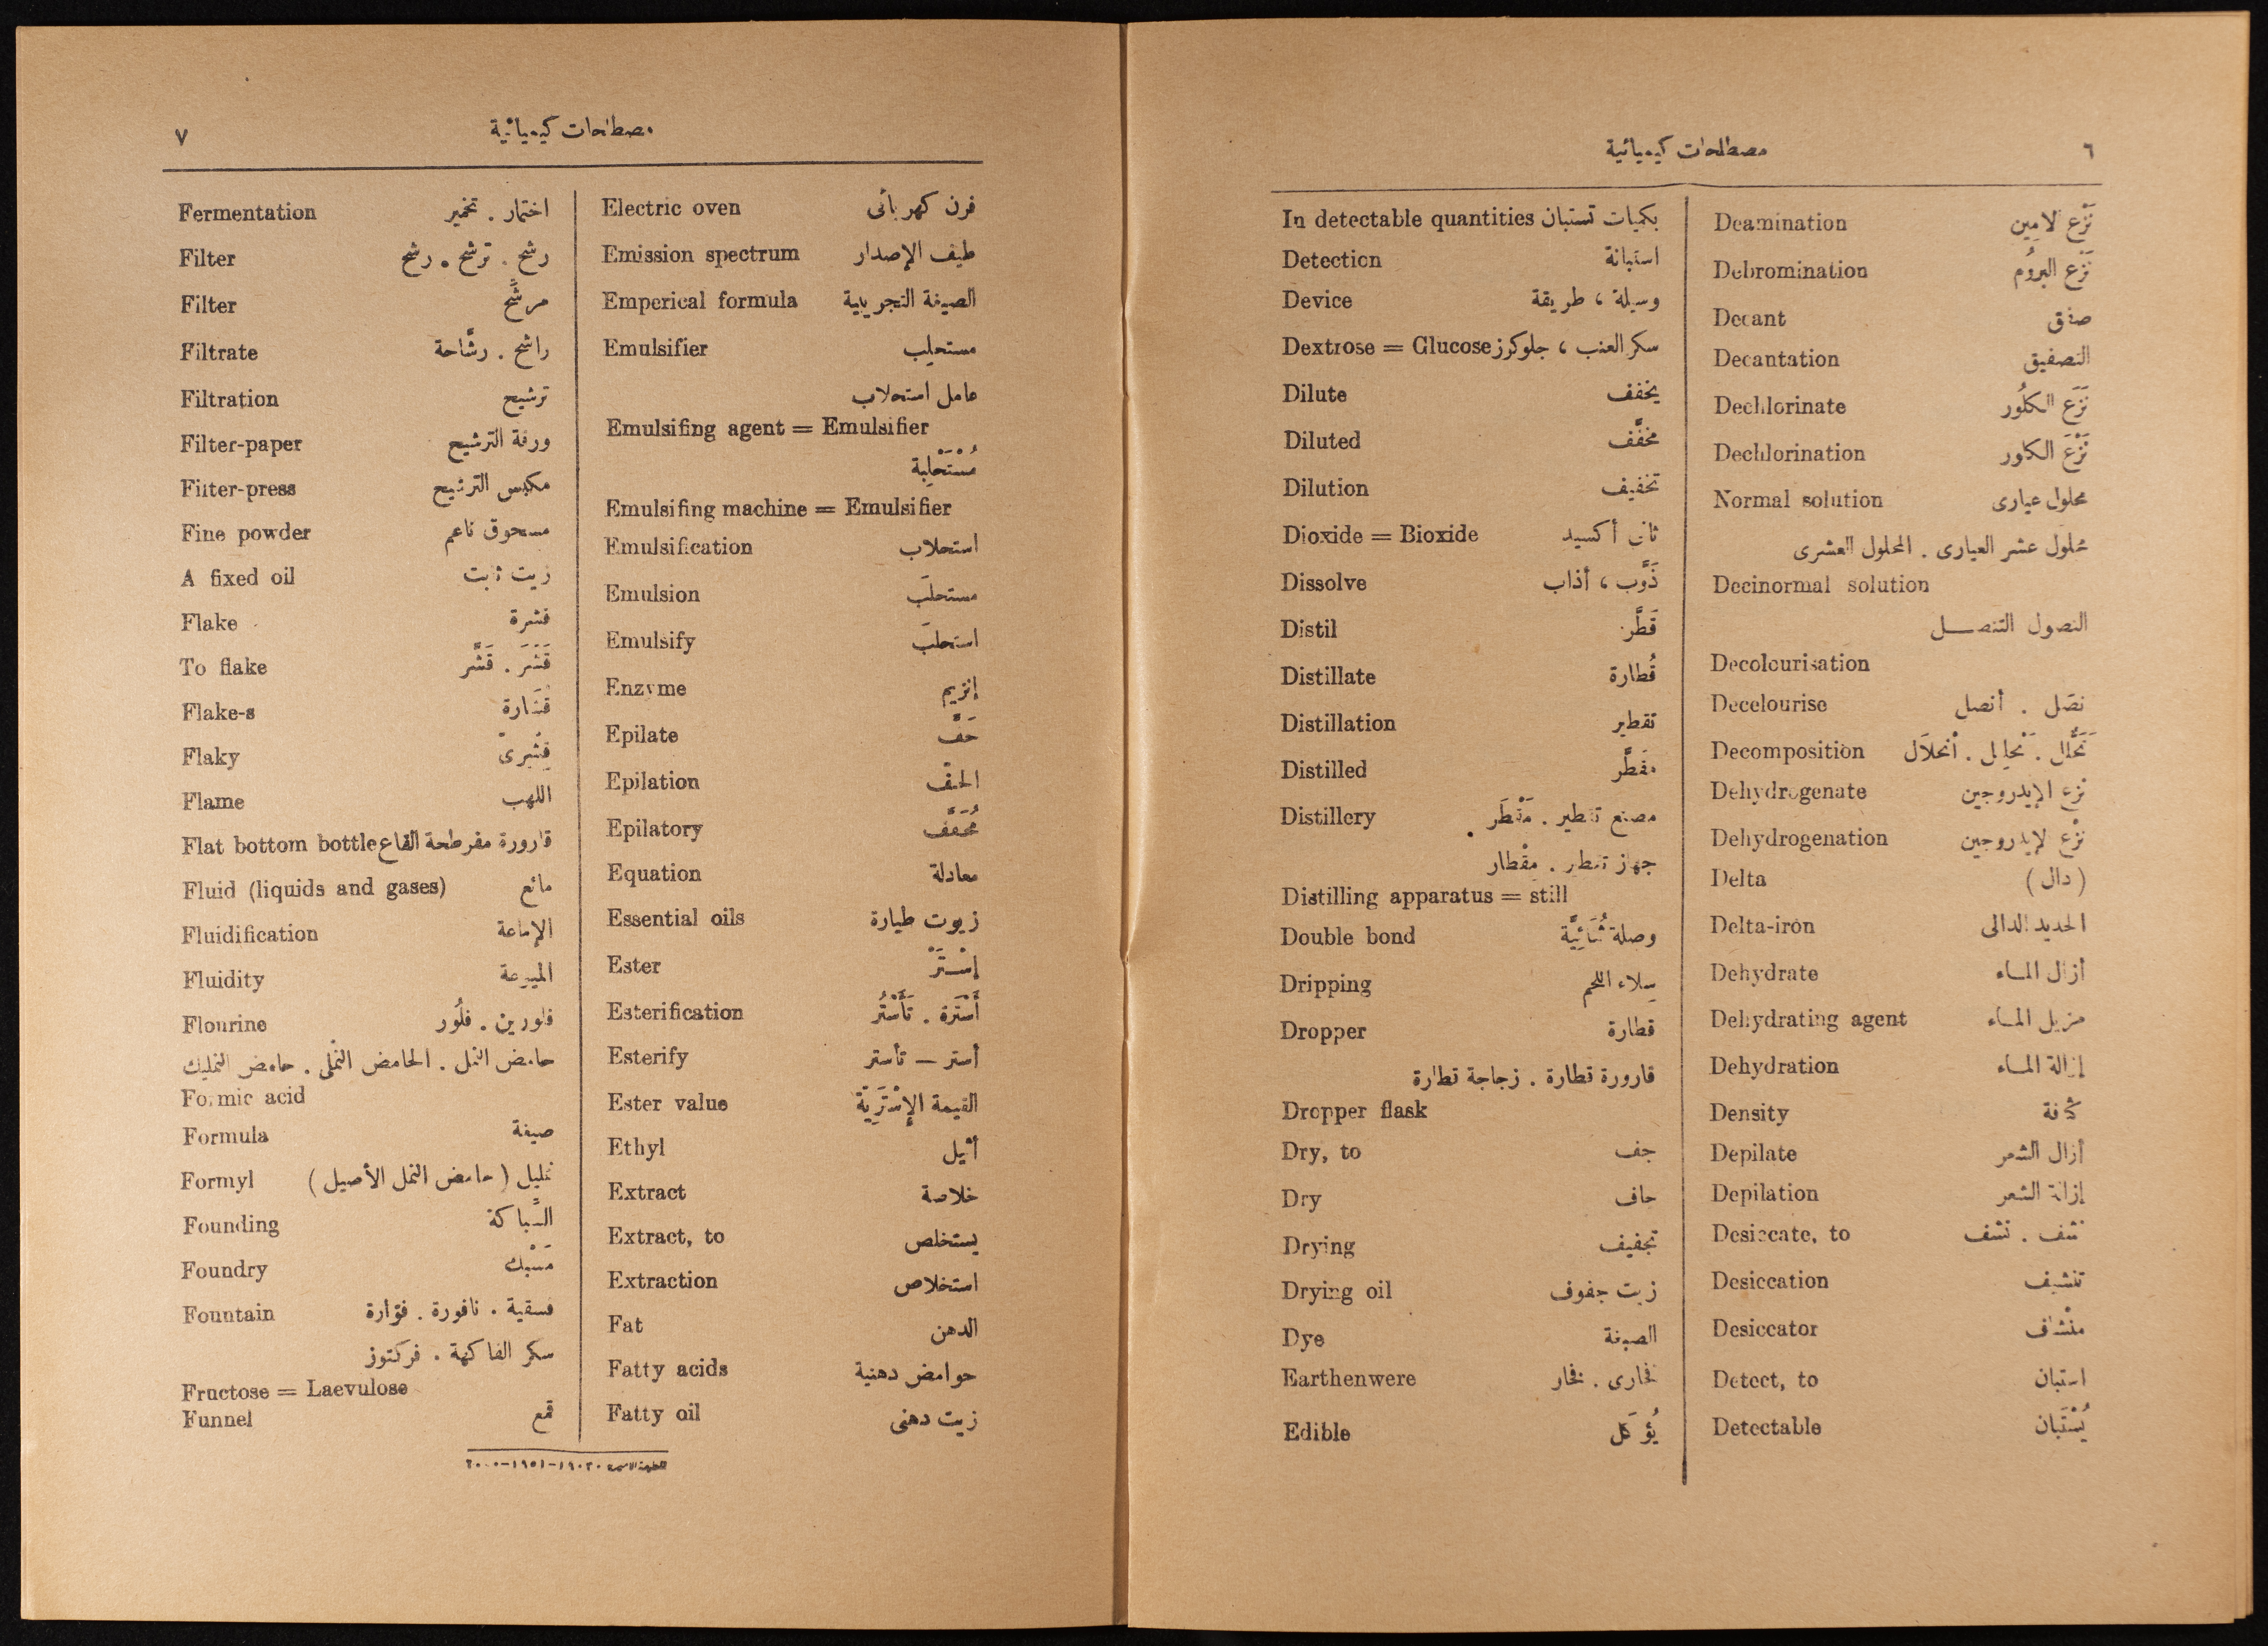 ٦
مصطلحات كيميائية
Deamination نَزْع لامِين
Debromination نَزْع البرُوم
Decant صفق
Decantation التصفيق
Dechlorinate نَزَع الكلُور
Dechlorination نَزْعَ الكلور
Normal solution محلول عيارى
محلول عشر العيارى . المحلول العشرى
Decinormal solution
النصول التنصــل
Decolourisation
Decelourise نصَل . أنصل
Decomposition تَحَّلل . تَحليل . أنحلاَل
Dehydrogenate نزع الإيدروجين
Dehydrogenation نزْع لإيدروجين
Delta ( دال )
Delta-iron الحديد الدالى
Dehydrate أزال المـاء
Dehydrating agent مزيل المـاء
Dehydration إزالة المـاء
Density كثافة
Depilate أزال الشعر
Depilation إزالة الشعر
Desiccate, to نشف . نشف
Desiccation تنشيف
Desiccator منْشاف
Detect, to استبان
Detectable يُسْتَبان
In detectable quantities بكميات تستبان
Detection استبانة
Device وسيلة ، طريقة
Dextrose = Glucose سكر العنب ، جلوكرز
Dilute يخفف
Diluted مخفَّف
Dilution تخفيف
Dioxide = Bioxide ثانى أكسيد
Dissolve ذَوَّب ، أذاب
Distil قَطَّر
Distillate قُطارة
Distillation تقطير
Distilled مقطَّر
Distillery مصنع تقطير . مَقْطَر
جهاز تقطير . مِقْطار
Distilling apparatus = still
Double bond وصلة ثُنَائِيَّة
Dripping سِلاء اللحم
Dropper قطارة
قارورة قطارة . زجاجة قطارة
Dropper flask
Dry, to جف
Dry جاف
Drying تجفيف
Drying oil زيت جفوف
Dye الصبغة
Earthenwere فخارى . فخار
Edible يُؤكَل
مصطلحات كيميائية
٧
Electric oven فرن كهربائى
Emission spectrum طيف الإصدار
Emperical formula الصيغة التجريبية
Emulsifier مستحلِب
عامل استحلاب
Emulsifing agent = Emulsifier
مُسْتَحْلِبة
Emulsifing machine = Emulsifier
Emulsification استحلاب
Emulsion مستحلَب
Emulsify استحلَب
Enzyme إنزيم
Epilate حَفَّ
Epilation الحفّ
Epilatory مُحَفَّف
Equation معادلة
Essential oils زيوت طيارة
Ester إسْتَرْ
Esterification أَسْتَرَة . تَأَسْتُر
Esterify أستر — تأستر
Ester value القيمة الإسْتَرِيَّة
Ethyl أثيل
Extract خلاصة
Extract, to يستخلص
Extraction استخلاص
Fat الدهن
Fatty acids حوامض دهنية
Fatty oil زيت دهنى
Fermentation اختمار . تخمير
Filter رشح . ترشح . رشح
Filter مرشَّح
Filtrate راشح . رشَّاحة
Filtration ترشيح
Filter-paper ورقة الترشيح
Fiiter-press مكبس الترشيح
Fine powder مسحوق ناعم
A fixed oil زيت ثابت
Flake قشرة
To flake قَشَرَ . قَشَّر
Flake-s قُشَارة
Flaky قِشْرىّ
Flame اللهب
Flat bottom bottle قارورة مفرطحة القاع
Fluid (liquids and gases) مائع
Fluidification الإماعة
Fluidity الميوعة
Flourine فلورين . فلُور
حامض النمل . الحامض النَّملى . حامض النمليك
Formic acid
Formula صيغة
Formyl نمليل ( حامض النمل الأصيل )
Founding السِّباكة
Foundry مَسْبك
Fountain فسقية . نافورة . فوّارة
سكر الفاكهة . فركتوز
Fructose = Laevulose
Funnel قمع